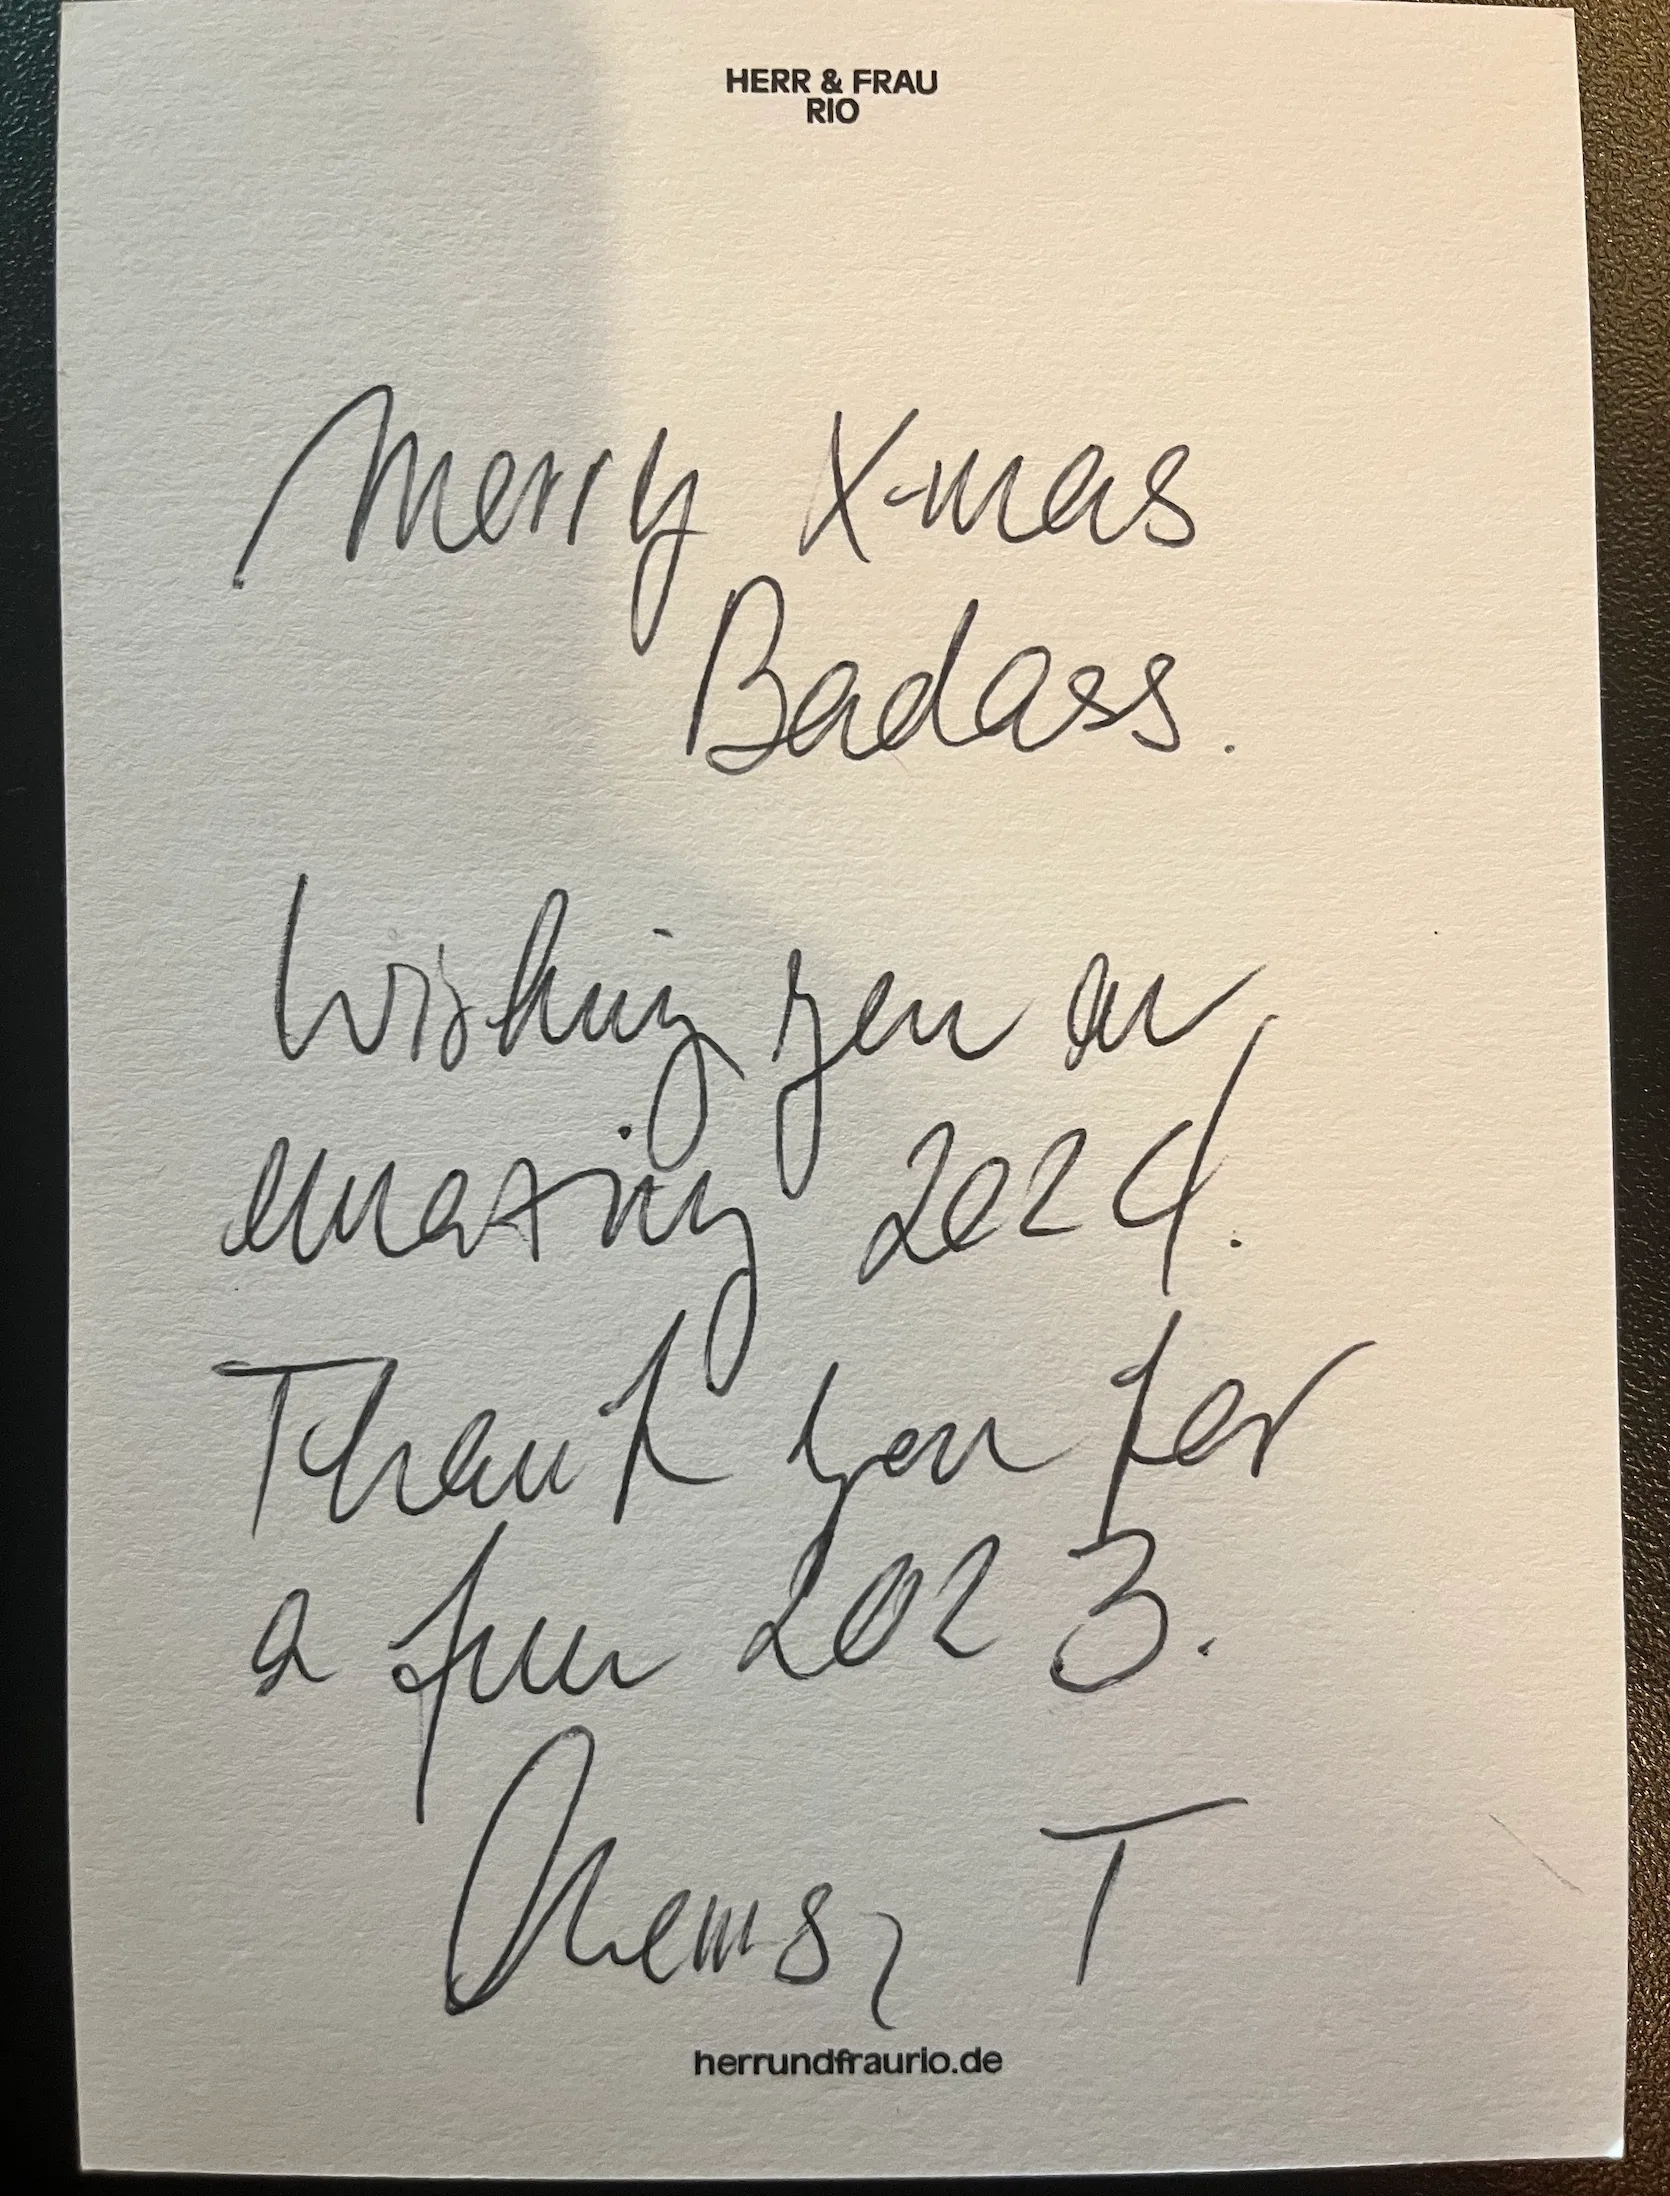 HERR & FRAU
RIO
Merry X-mas
Badass.
Wishing you an
amazing 2024.
Thank you for
a fun 2023.
T
herrundfraurio.de